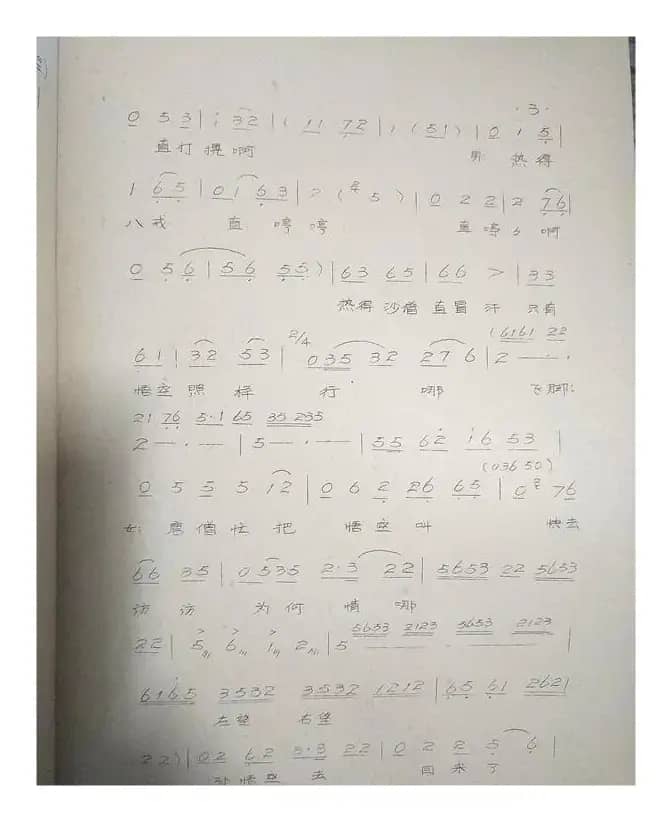 ·3·
0 5 3 | i 32 | ( 11 72 | 1 (51) | 0 1 5 |
直打攪啊 男: 热得
1 65 | 01 63 | 2 ( 5) | 0 2 2 | 2 76 |
八戒 直哼哼 直哼哼啊
0 56 | 56 55 ) | 63 65 | 66 > | 33
热得沙僧直冒汗 只有
(6161 22
61 | 32 53 | 2/4 035 32 276 | 2 - - -
悟空照样行哪 飞脚:
21 76 5·1 65 35 235
2 - - - | 5 - - - | 55 62 i6 53 |
(036 50)
0 5 5 5 12 | 0 6 2 26 65 | 0 76
女: 唐僧忙把 悟空叫 快去
66 35 | 0535 2·3 22 | 5653 22 5653
访访 为何情哪
5653 2123 3653 2123
22 | 5 6 1 2 | 5 - - - |
6165 3532 3532 1212 | 65 61 2621
左望 右望
22) | 02 62 3·3 22 | 0 2 2 5 6 |
孙悟空去 回来了